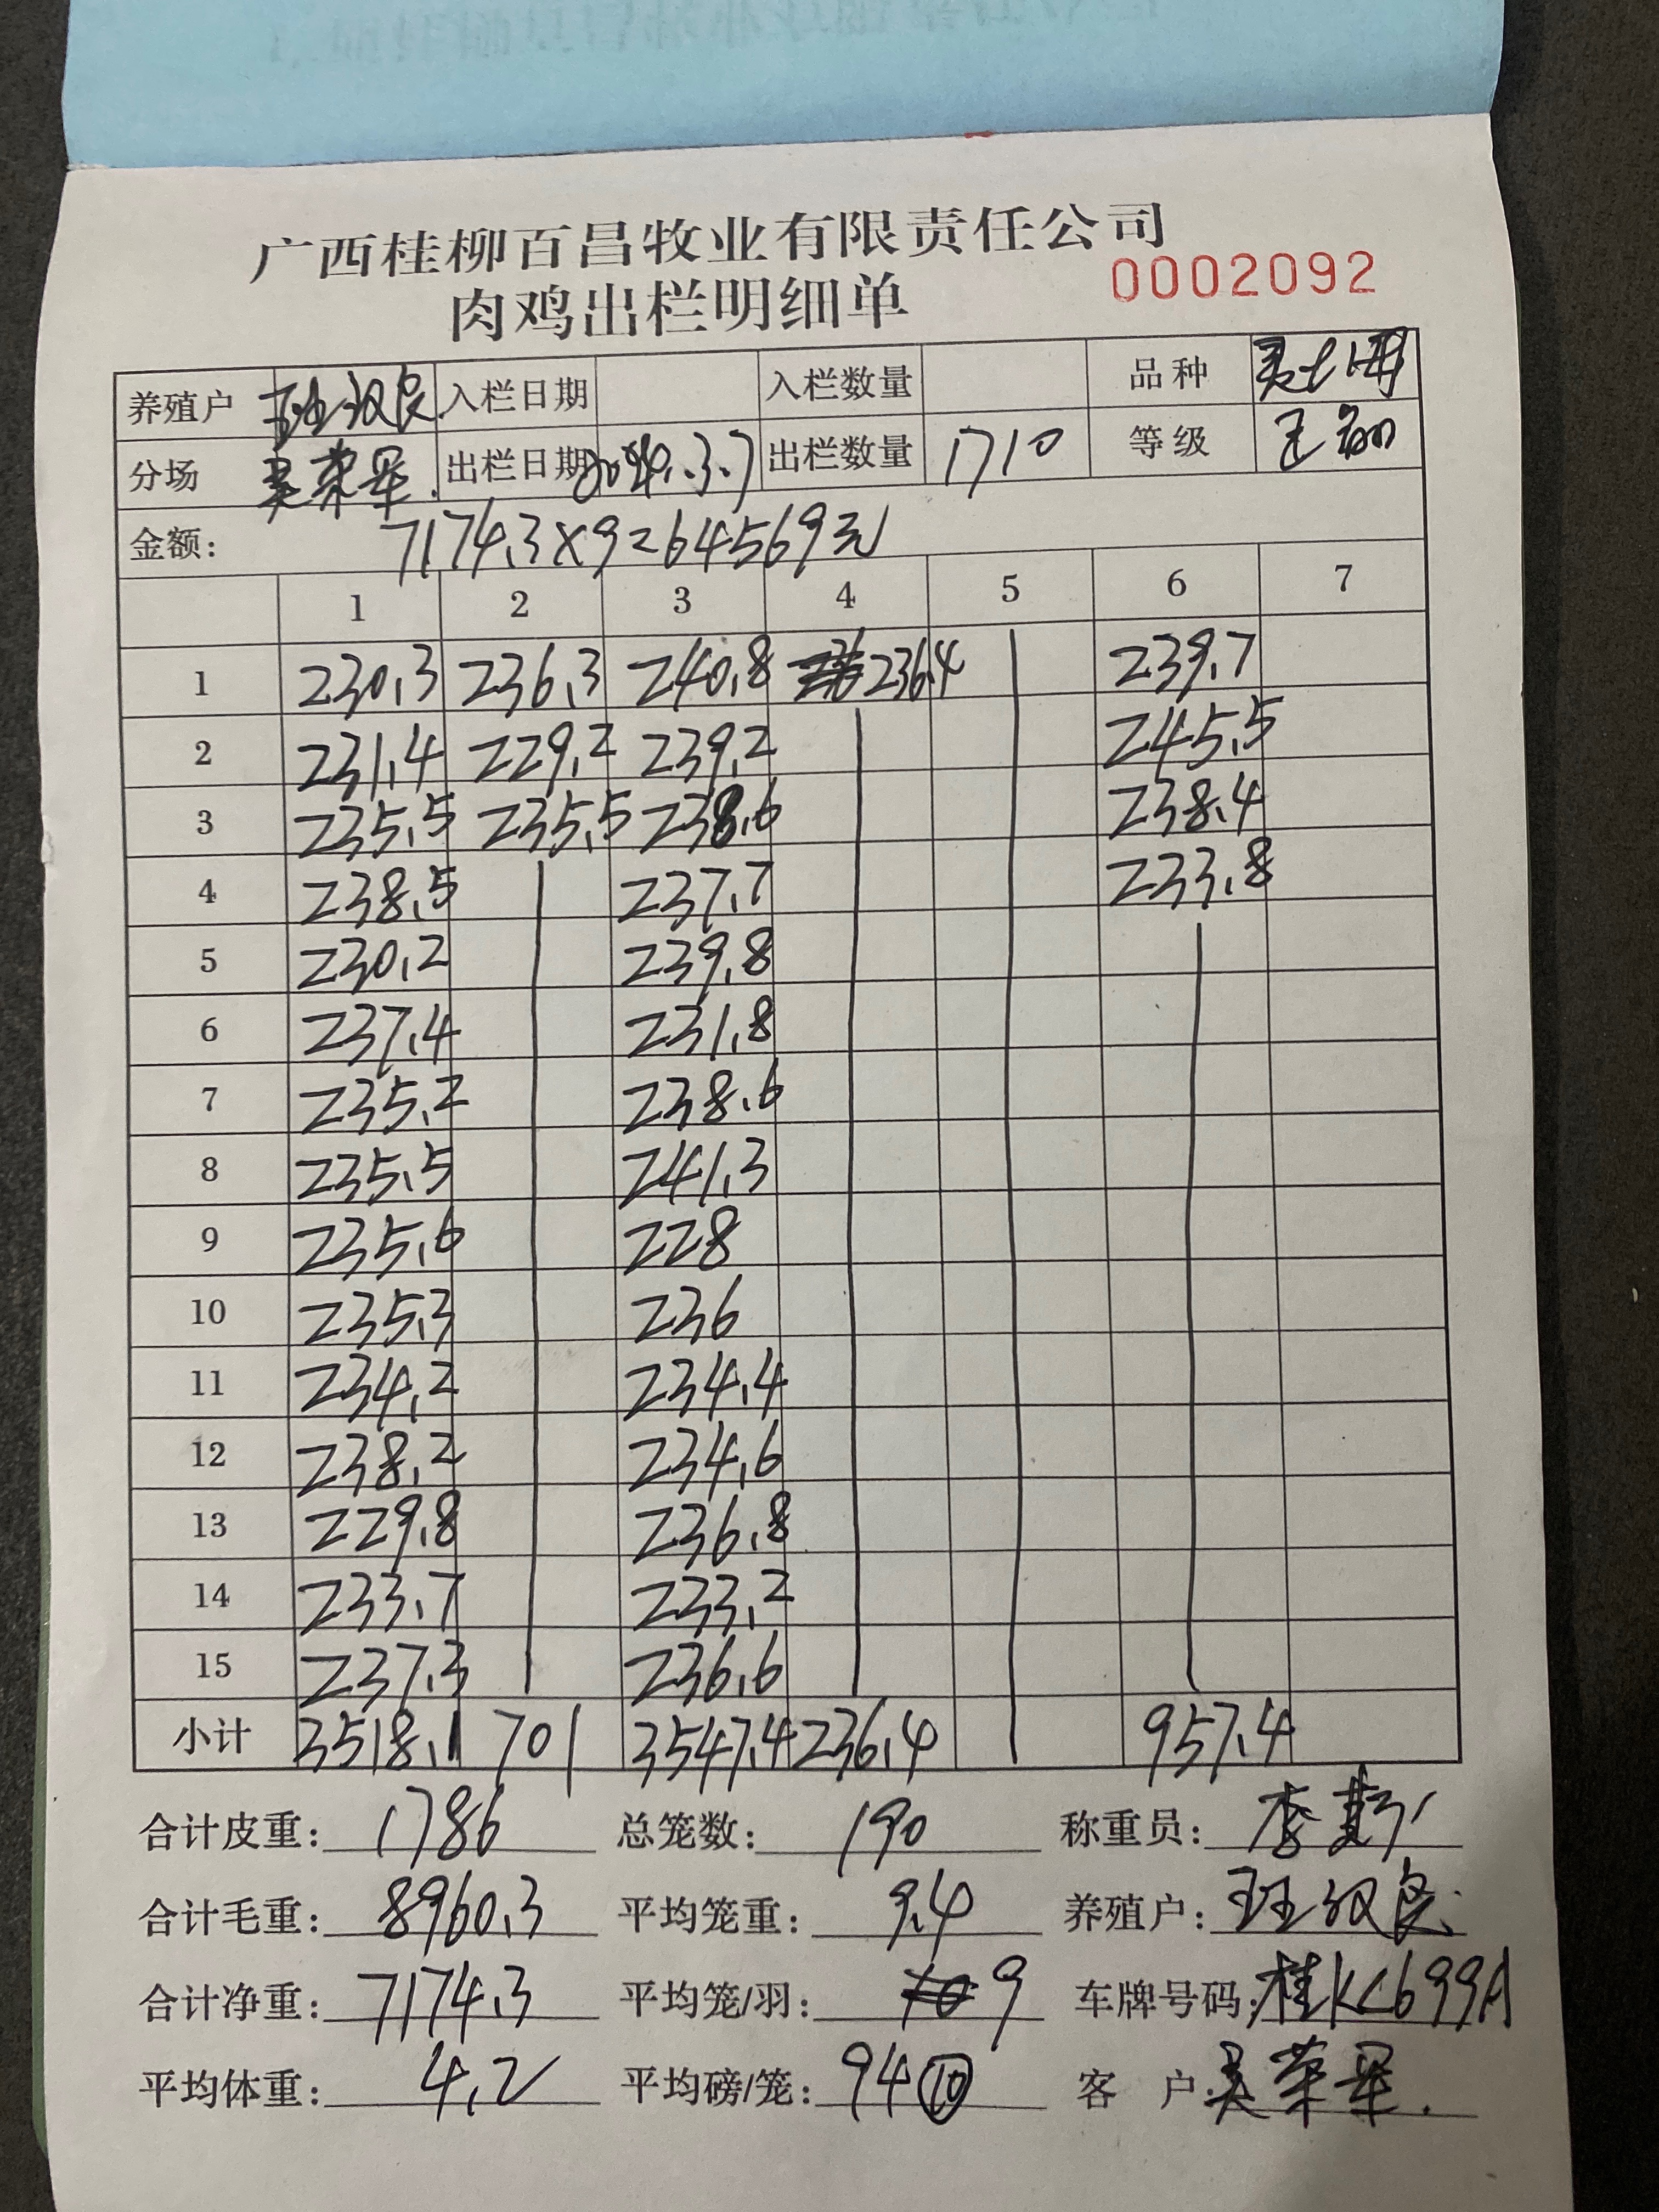 广西桂柳百昌牧业有限责任公司
肉鸡出栏明细单 0002092
养殖户 班汉良 入栏日期 入栏数量 品种
分场 吴荣军. 出栏日期 出栏数量 1710 等级
金额: 7174.3×9=64569元
1 2 3 4 5 6 7
1 230.3 236.3 240.8 236.4 239.7
2 231.4 229.2 239.2 245.5
3 235.5 235.5 238.6 238.4
4 238.5 237.7 233.8
5 230.2 239.8
6 237.4 231.8
7 235.2 238.6
8 235.5 241.3
9 235.6 228
10 235.3 236
11 234.2 234.4
12 238.2 234.6
13 229.8 236.8
14 233.7 233.2
15 237.3 236.6
小计 3518.1 701 3547.4 236.4 957.4
合计皮重: 1786 总笼数: 190 称重员: 李
合计毛重: 8960.3 平均笼重: 9.4 养殖户: 班汉良
合计净重: 7174.3 平均笼/羽: 9 车牌号码: 桂KC699A
平均体重: 4.2 平均磅/笼: 94 10 客 户: 吴荣军.